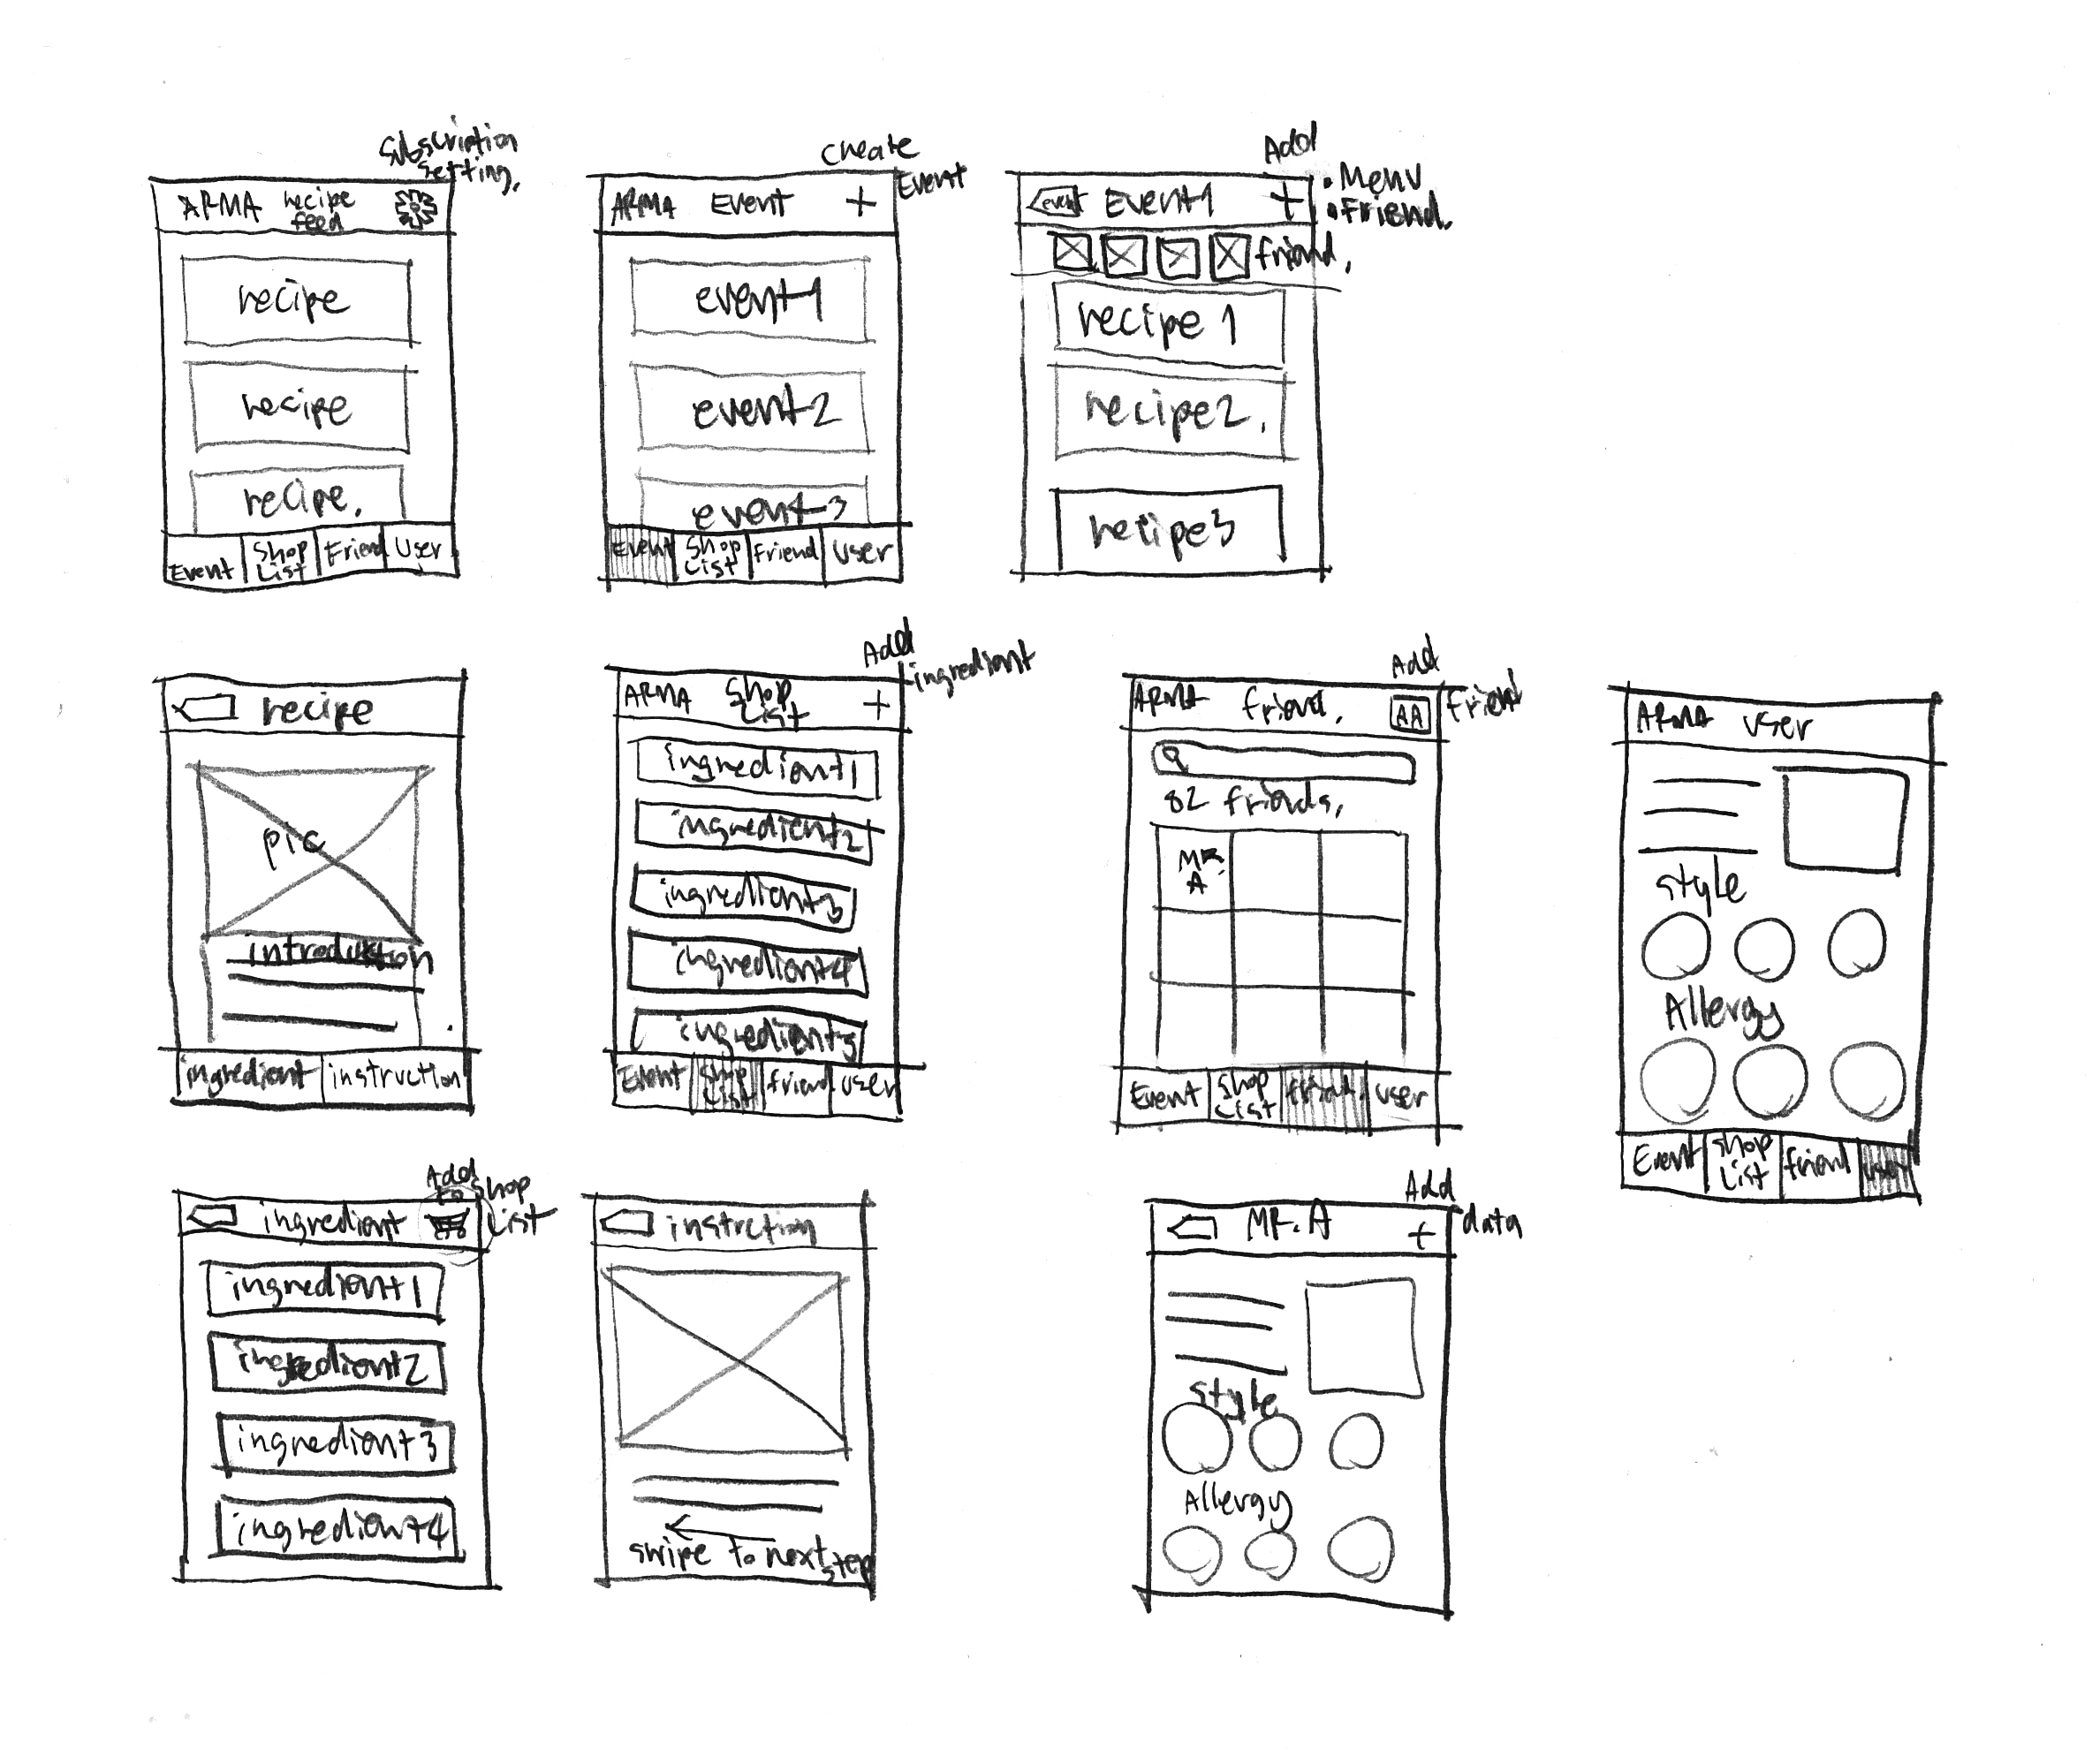 Subscription
setting.
ARMA recipe
feed
recipe
recipe
recipe.
Event
Shop
List
Friend
User
create
Event
ARMA Event +
event1
event2
event3
Event
Shop
List
Friend
User
Add
• Menu
• Friend.
event Event1 +
friend.
recipe 1
recipe2.
recipe3
recipe
pic
introduction
ingredient
instruction
Add
ingredient
ARMA Shop
List +
ingredient1
ingredient2
ingredient3
ingredient4
ingredient5
Event
Shop
List
friend
user
Add
Friend
ARMA friend. AA
82 friends.
MR.
A
Event
Shop
List
friend.
user
ARMA user
style
Allergy
Event
shop
List
friend
user
Add
to shop
List
ingredient
ingredient1
ingredient2
ingredient3
ingredient4
instrction
swipe to next step
Add
data
MR. A +
style
Allergy